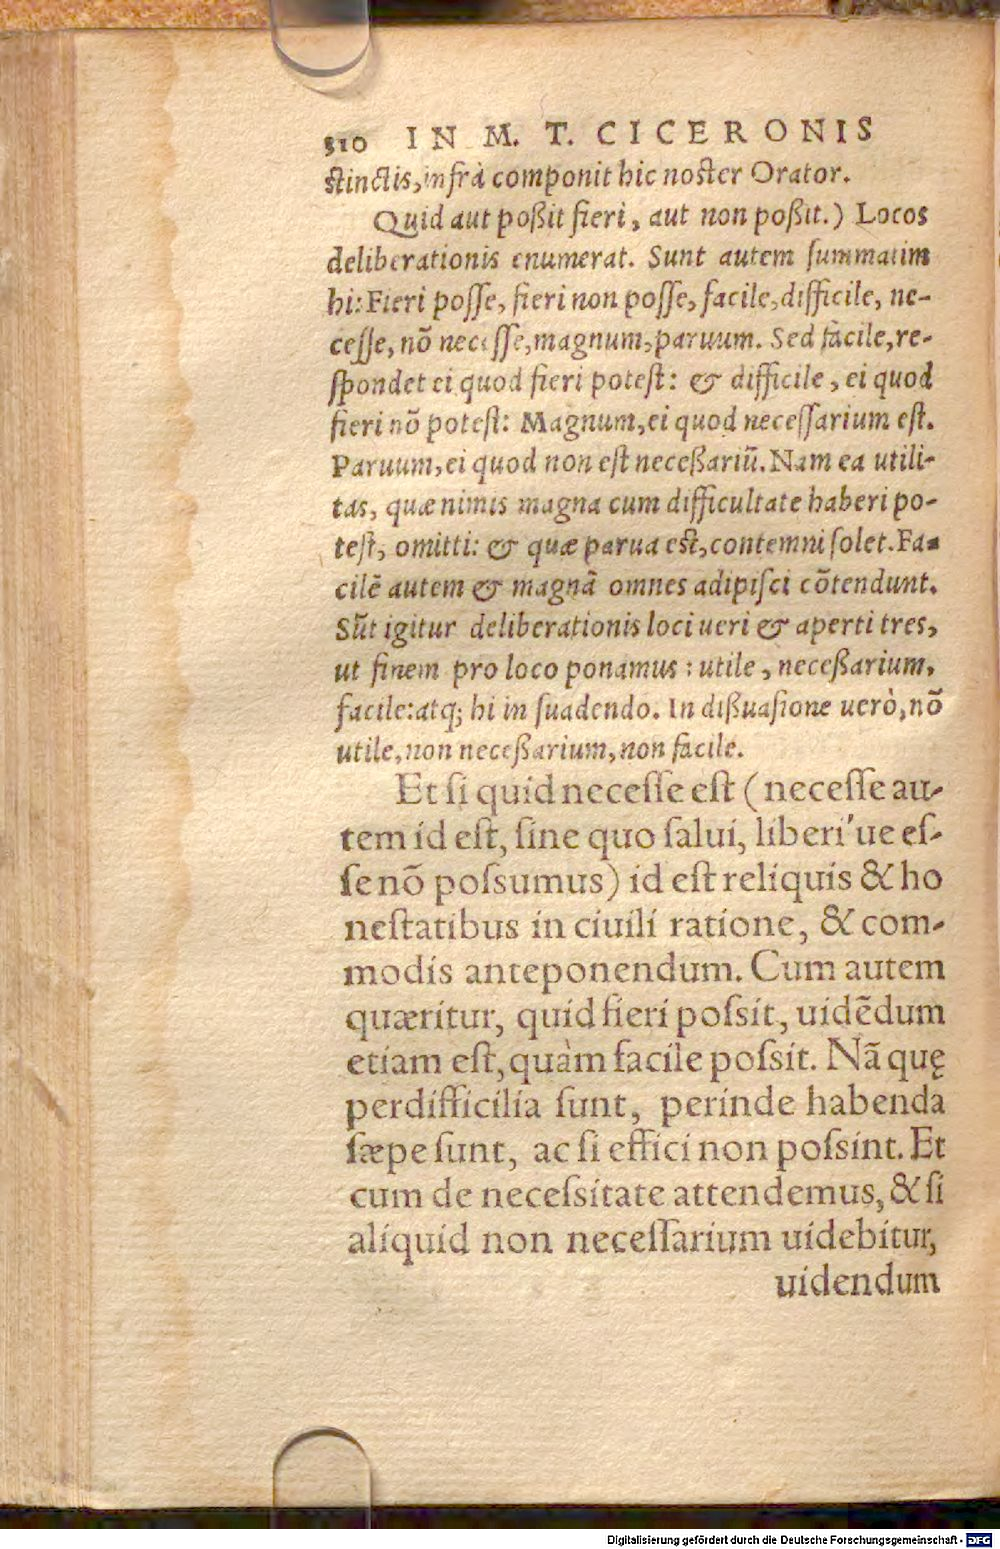 310 IN M. T. CICERONIS
stinctis, infrà componit hic noster Orator.
Quid aut poßit fieri, aut non poßit.) Locos
deliberationis enumerat. Sunt autem ſummatim
hi: Fieri poſſe, fieri non poſſe, facile, difficile, ne-
ceſſe, nõ neceſſe, magnum, paruum. Sed facile, re-
ſpondet ei quod fieri poteſt: & difficile, ei quod
fieri nõ poteſt: Magnum, ei quod neceſſarium eſt.
Paruum, ei quod non eſt neceßariũ. Nam ea utili-
tas, quæ nimis magna cum difficultate haberi po-
teſt, omitti: & quæ parua est, contemni ſolet. Fa-
cilẽ autem & magnã omnes adipiſci cõtendunt.
Sũt igitur deliberationis loci ueri & aperti tres,
ut finem pro loco ponamus: utile, neceßarium,
facile: atq; hi in ſuadendo. In dißuaſione uerò, nõ
utile, non neceßarium, non facile.
Et ſi quid neceſſe eſt (neceſſe au-
tem id eſt, ſine quo ſalui, liberi'ue eſ-
ſe nõ poſsumus) id eſt reliquis & ho
neſtatibus in ciuili ratione, & com-
modis anteponendum. Cum autem
quæritur, quid fieri poſsit, uidẽdum
etiam eſt, quàm facile poſsit. Nã quę
perdifficilia ſunt, perinde habenda
ſæpe ſunt, ac ſi effici non poſsint. Et
cum de neceſsitate attendemus, & ſi
aliquid non neceſſarium uidebitur,
uidendum
Digitalisierung gefördert durch die Deutsche Forschungsgemeinschaft - DFG